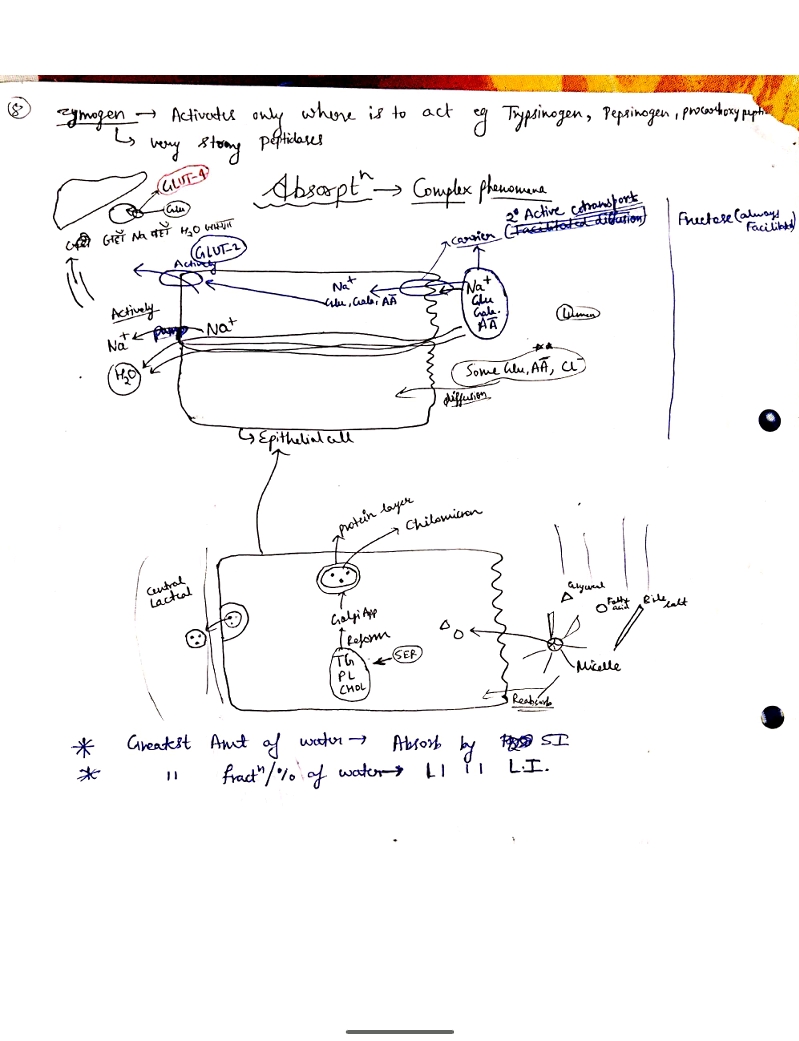 8
zymogen → Activates only where is to act eg Trypsinogen, Pepsinogen, procarboxypepti
↳ very strong peptidases
GLUT-4
Glu
Absorptⁿ → Complex phenomena
जहाँ Na वहाँ H₂O
GLUT-2
Actively
carrier (2° Active cotransport
Facilitated diffusion)
Fructose (always
Facilitated)
Na⁺
Glu, Gala, AA
Na⁺
Glu
Gala.
AA
Lumen
Actively
Na⁺ ← pump Na⁺
H₂O
Some Glu, AA, Cl⁻
diffusion
↳ Epithelial cell
protein layer
Chilomicron
Central
Lacteal
Golgi App
Reform
TG
PL
CHOL
SER
Glycerol
Fatty
acid
Bile
salt
Micelle
Reabsorb
* Greatest Amt of water → Absorb by SI
* " fractⁿ/% of water → L.I.